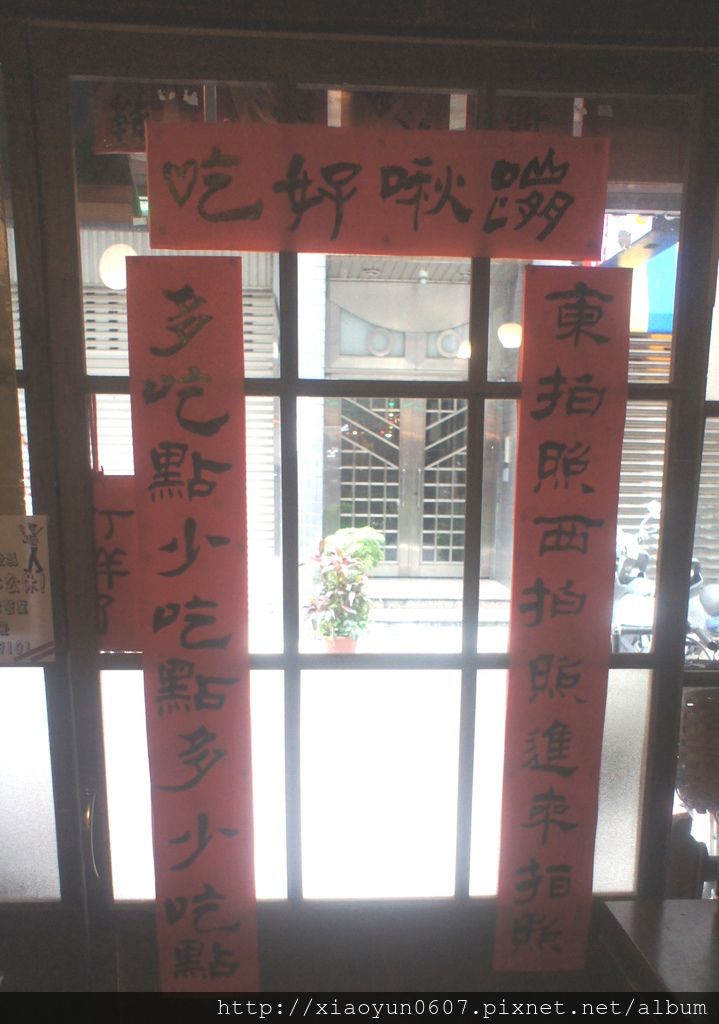 吃好啾蹦
東拍照西拍照進來拍照
多吃點少吃點多少吃點
丁洋服
公休!
7101
http://xiaoyun0607.pixnet.net/album